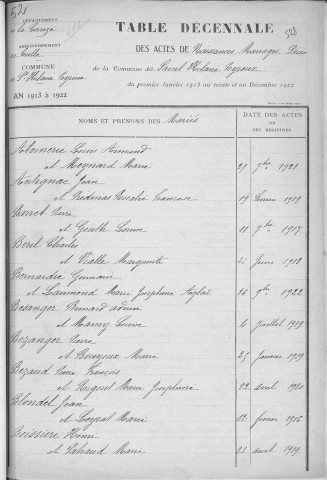 DÉPARTEMENT
de la Corrèze
ARRONDISSEMENT
de Tulle
COMMUNE
de St Hilaire Peyroux
AN 1913 à 1922
TABLE DÉCENNALE
DES ACTES DE Naissances Mariages Décès
de la Commune de Saint Hilaire Peyroux
du premier Janvier 1913 au trente et un Décembre 1922
NOMS ET PRÉNOMS DES Mariés
DATE DES ACTES
OU
DES REGISTRES
Louis Armand
et Meynard Marie 29 9bre 1921
Antignac Jean
et Rosalie Françoise 19 1919
Pierre
et Louise 11 1917
Beril Charles
et Vialle Marguerite Juin 1918
Bernardie Germain
et Laumond Marie Joséphine 26 9bre 1922
Besanger Bernard
et Mamy Louise 4 Juillet 1919
Bezanger Pierre
et Marie 25 Janvier 1919
Bezaud Pierre François
et Nugent Marie Joséphine 22 avril 1920
Blondel Jean
et Marie 12 février 1916
Boissière Henri
et Marie 21 août 1919